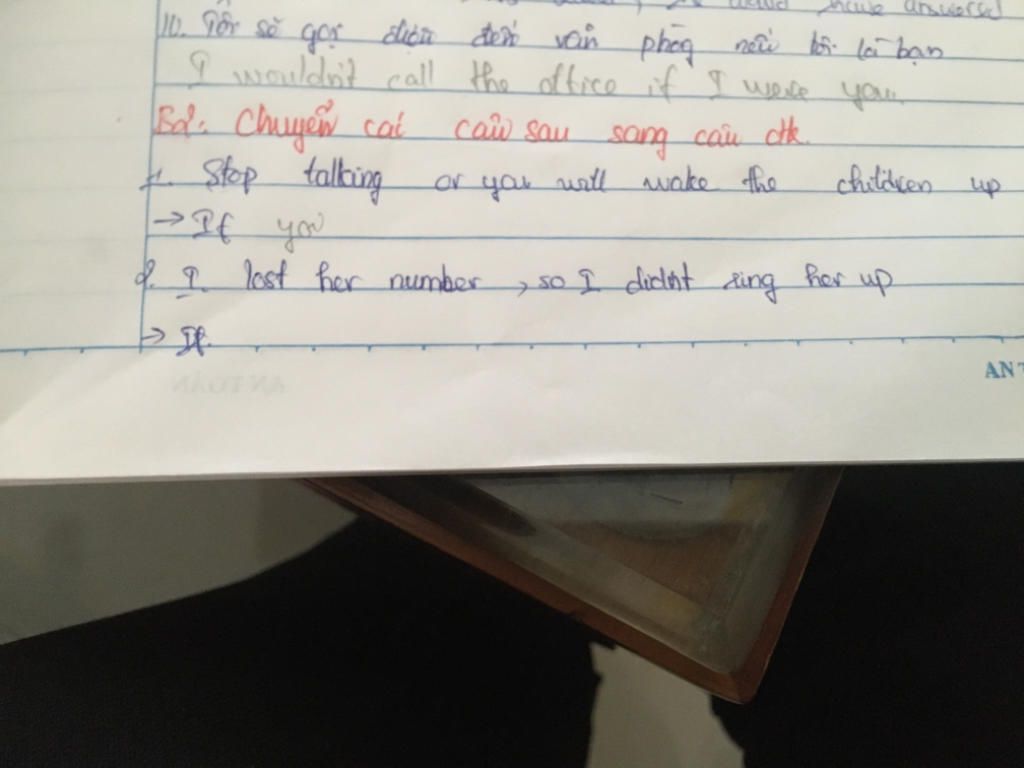 have answered
10. Tôi sẽ gọi điện đến văn phòg nếu tôi là bạn
I wouldn't call the office if I were you.
Bd2: Chuyển các câu sau sang câu đk.
1. Stop talking or you will wake the children up
→ If you
2. I lost her number, so I didn't ring her up
→ If
AN T